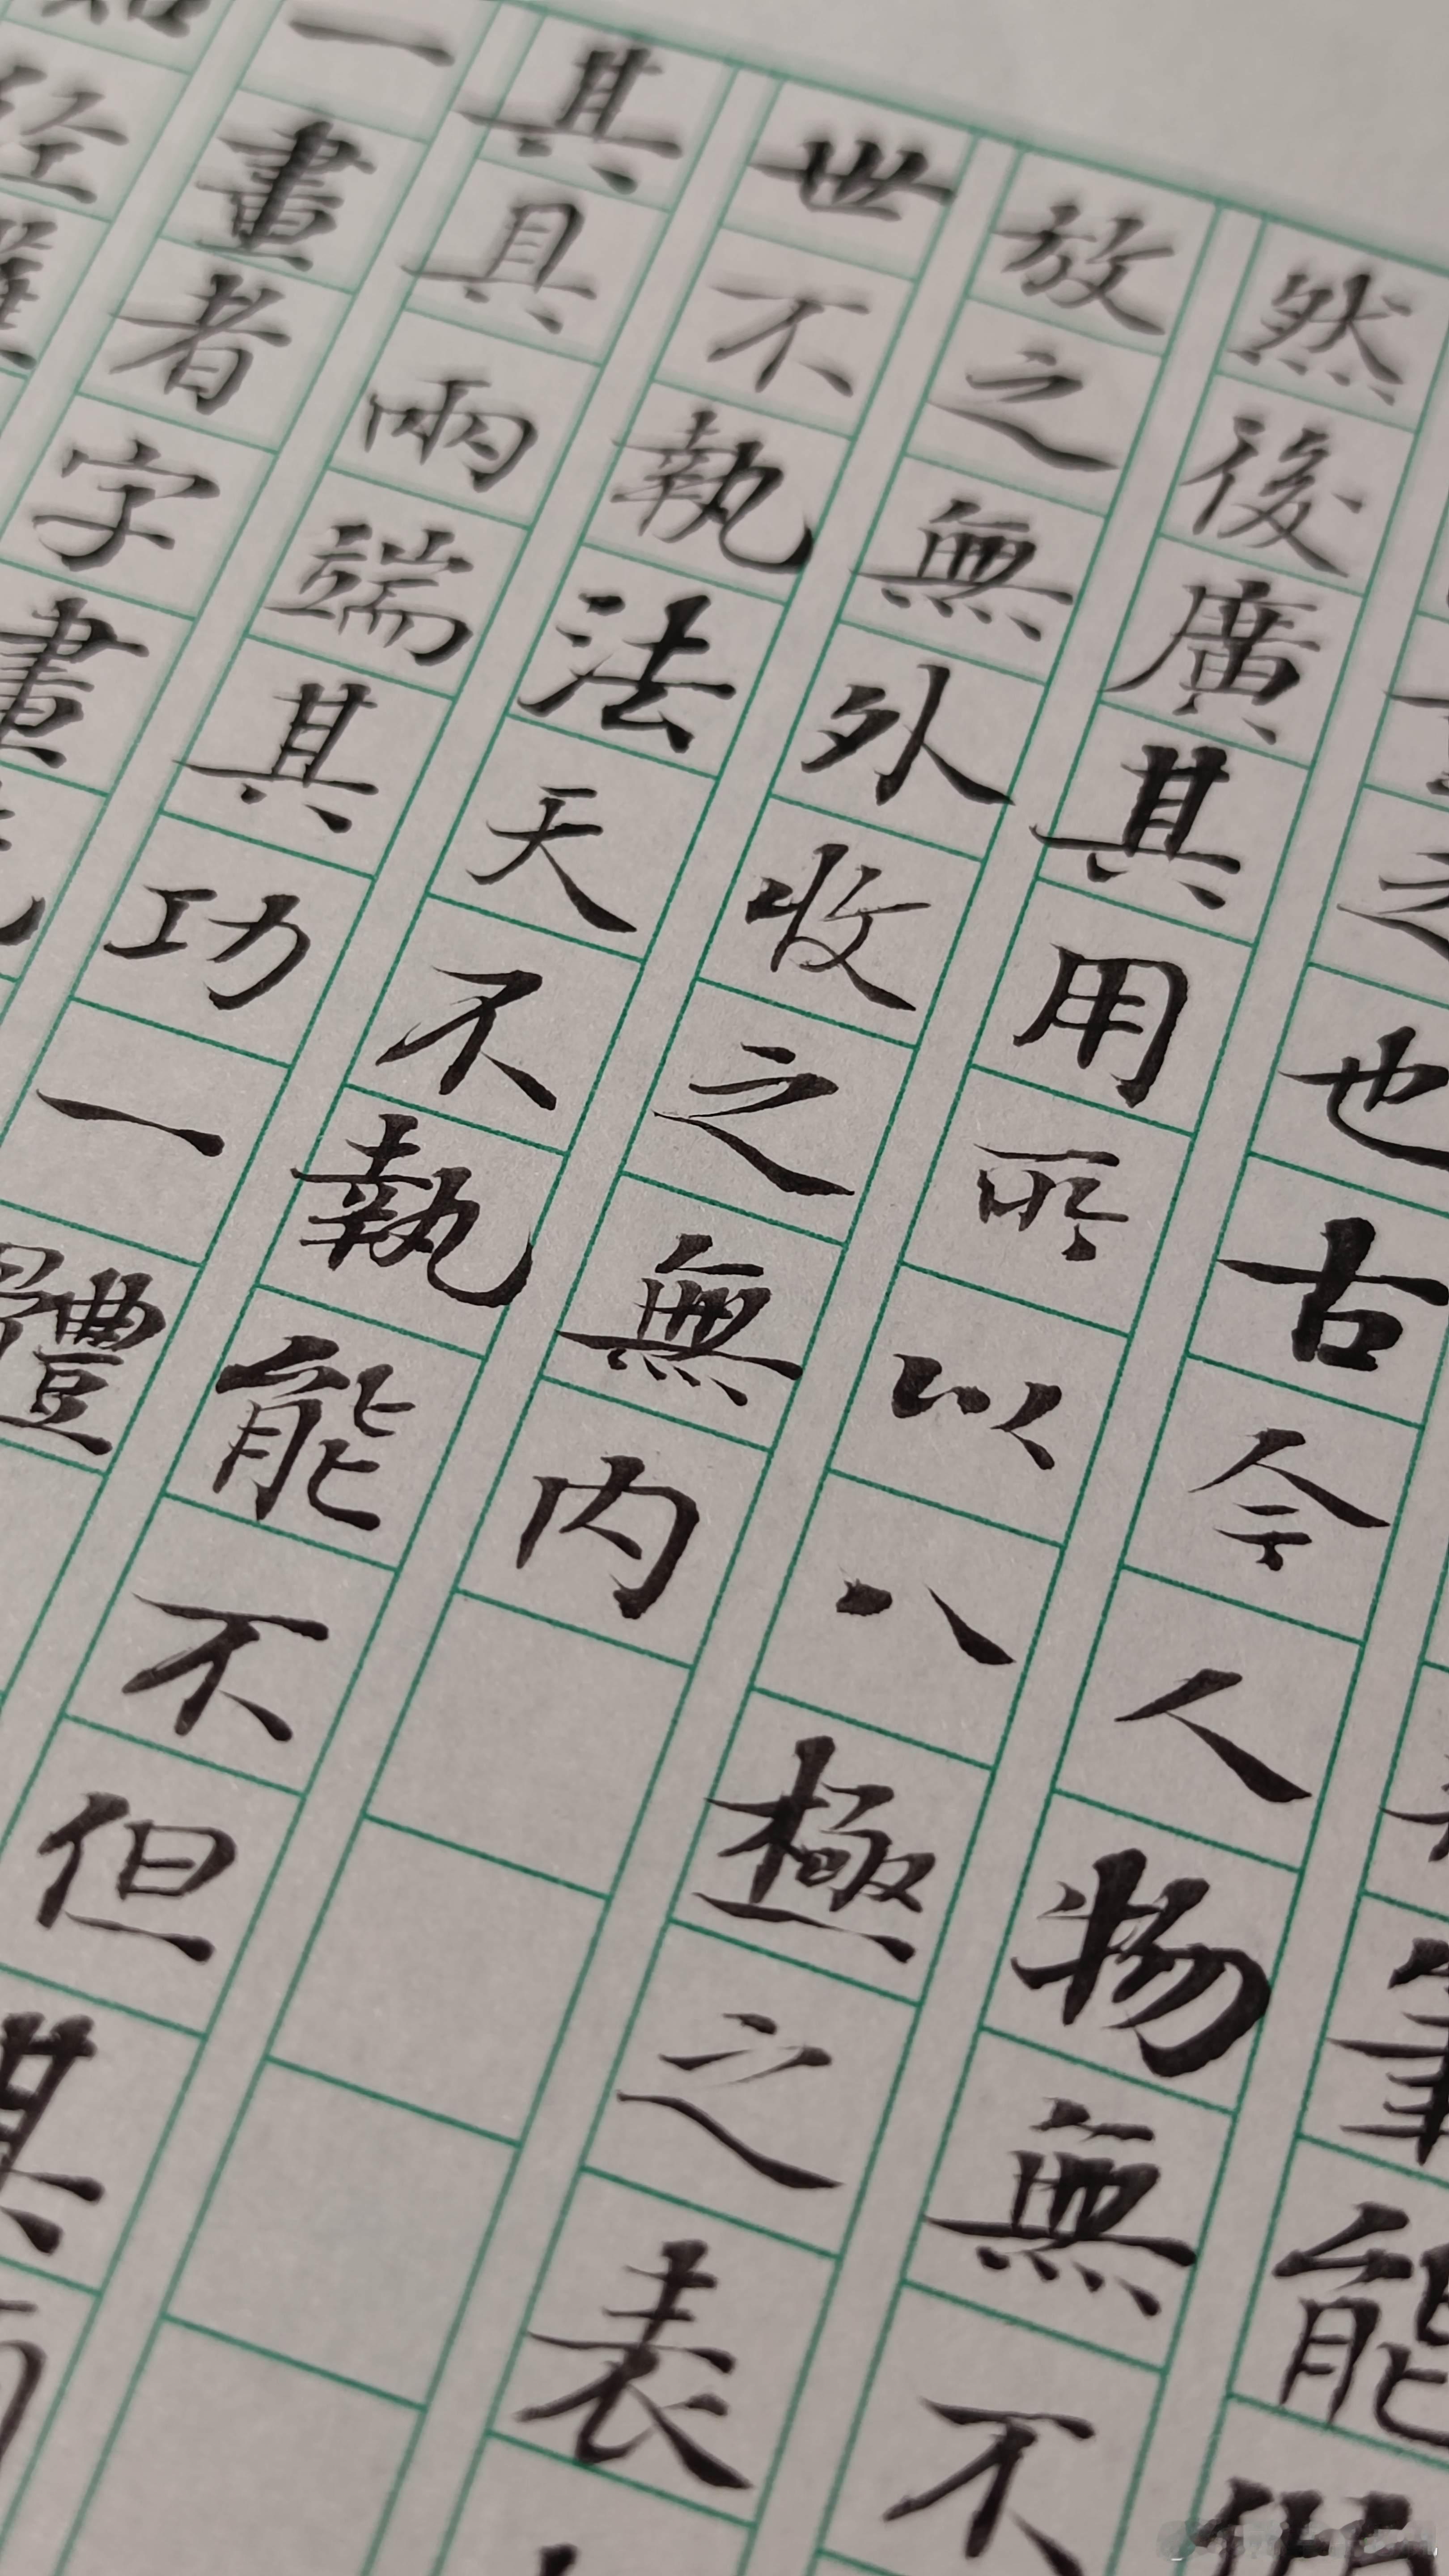 筆能
之也古今人物無不
然後廣其用所以八極之表
放之無外收之無内
世不執法天不執能不但其
其具兩端其功一體
一畫者字畫
経